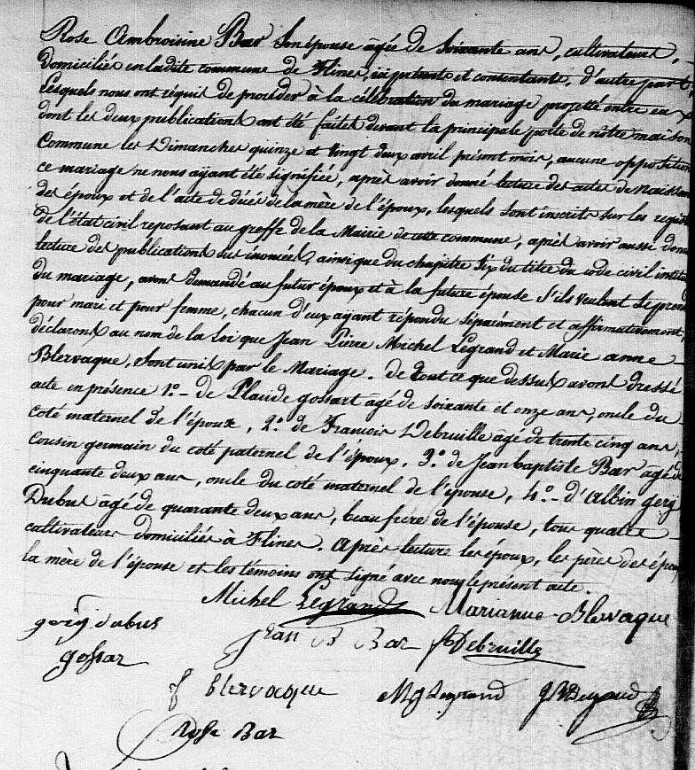 Rose Ambroisine Bar son épouse âgée de soixante ans, cultivateurs,
domiciliés en ladite commune de Flines, ici présents et consentants, d'autre part,
Lesquels nous ont requis de procéder à la célébration du mariage projetté entre eux
dont les deux publications ont été faites devant la principale porte de nôtre maison
Commune les Dimanches quinze et vingt deux avril présent mois, aucune opposition
ce mariage ne nous ayant été signifiée, après avoir donné lecture des actes de Naissan
des époux et de l'acte de décès de la mère de l'époux, lesquels sont inscrits sur les regist
de l'état civil reposant au greffe de la Mairie de cette commune, après avoir aussi donn
lecture des publications sus énoncées, ainsi que du chapitre six du titre du code civil intit
du mariage, avons demandé au futur époux et à la future épouse s'ils veulent se prend
pour mari et pour femme, chacun d'eux ayant répondu séparément et affirmativement,
déclarons au nom de la loi que Jean Pierre Michel Legrand et Marie anne
Blervaque, sont unis par le Mariage. de tout ce que dessus avons dressé
acte en présence 1º de Placide gossart agé de soixante et onze ans, oncle du
coté maternel de l'époux, 2º de Francois Debruille âgé de trente cinq ans,
Cousin germain du coté paternel de l'époux, 3º de Jean baptiste Bar âgé de
cinquante deux ans, oncle du coté maternel de l'épouse, 4º d'Albin gery
Dubus âgé de quarante deux ans, beau frère de l'épouse, tous quatre
cultivateurs domiciliés à Flines. Après lecture les époux, les pères des époux
la mère de l'épouse et les témoins ont signé avec nous le présent acte.
Michel Legrand Marianne Blervaque
géry dubus Jean B Bar f Debruille
gossar
f blervaque M j Legrand
Rose Bar